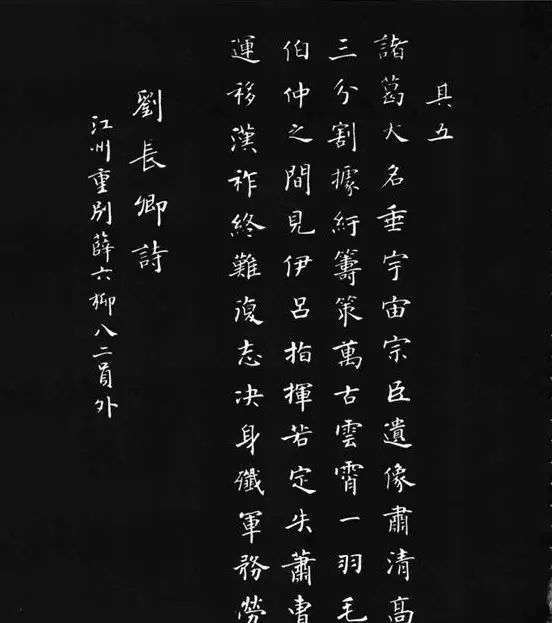 其五
諸葛大名垂宇宙宗臣遺像肅清高
三分割據紆籌策萬古雲霄一羽毛
伯仲之間見伊呂指揮若定失蕭曹
運移漢祚終難復志決身殲軍務勞
劉長卿詩
江州重別薛六柳八二員外